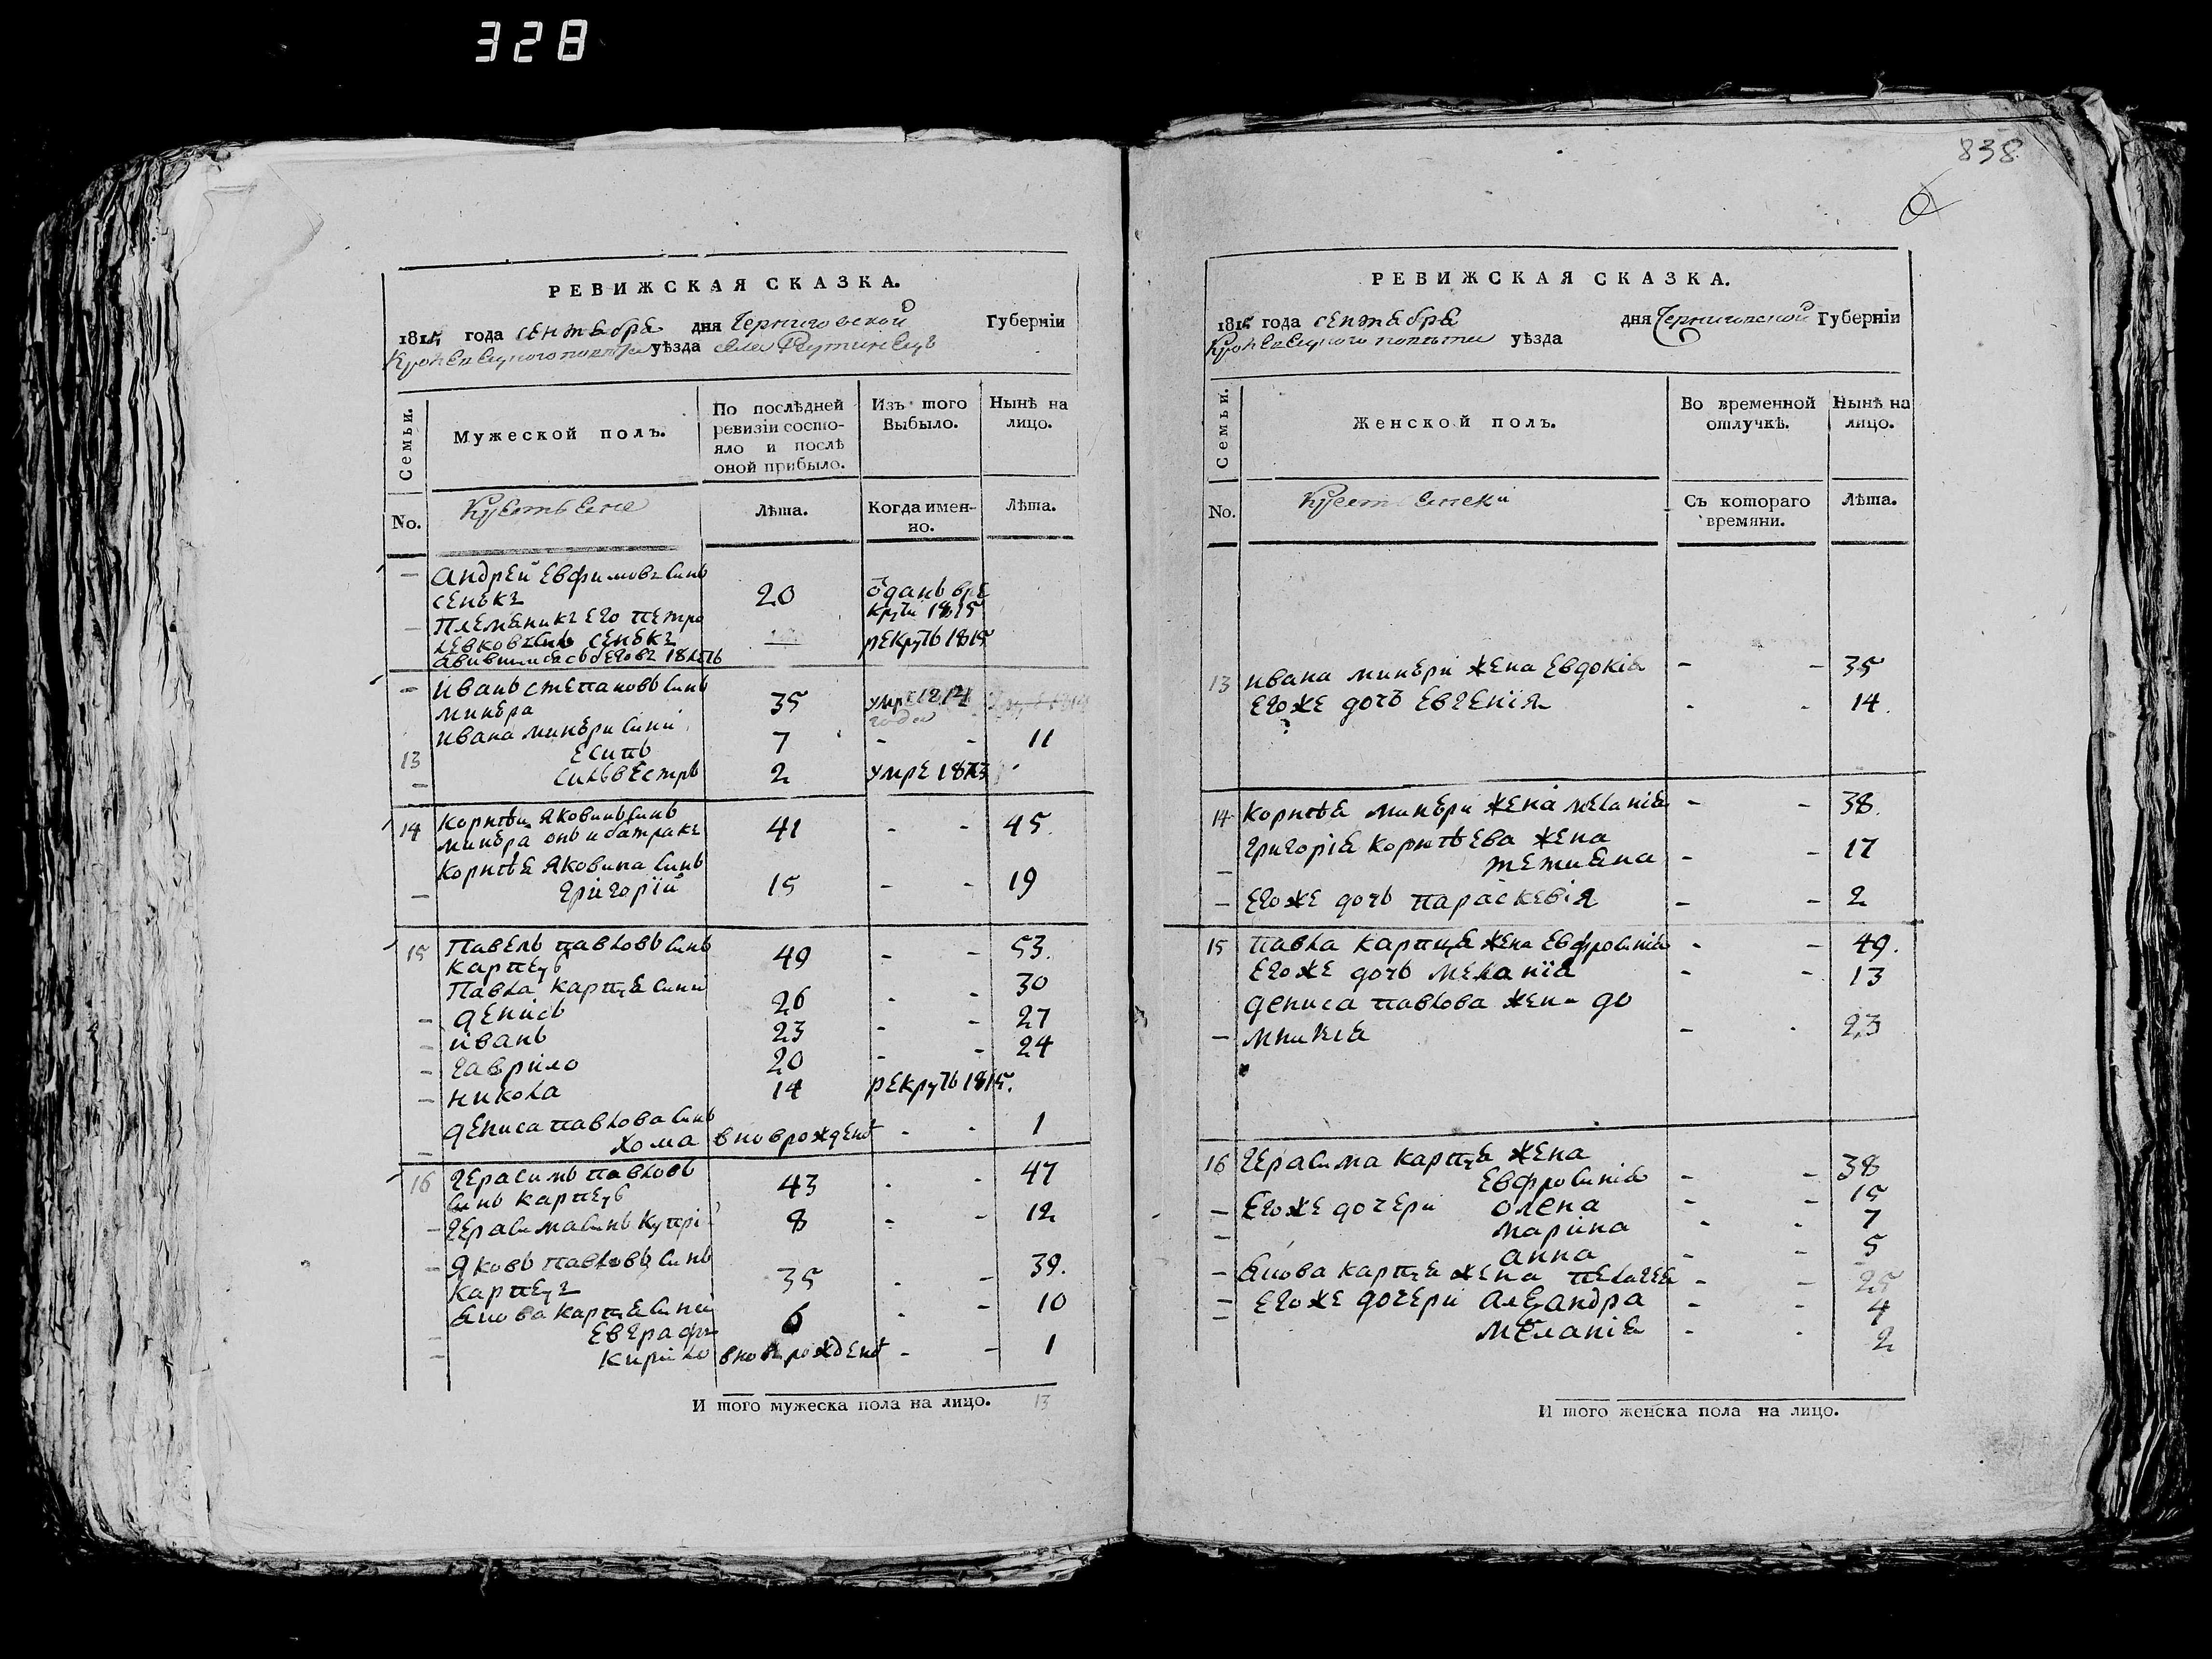 328
838
РЕВИЖСКАЯ СКАЗКА.
1815 года сентабра дня Черниговской Губерніи
Кролевецкого повѣта уѣзда села Рутинецъ
Семьи.
Мужеской полъ.
По послѣдней ревизіи состояло и послѣ оной прибыло.
Изъ того Выбыло.
Нынѣ на лицо.
No.
Крестьяне
Лѣта.
Когда именно.
Лѣта.
Андрей Евфимовъ синъ
сенекъ 20 ѿданъ в ре
крути 1815
Племеникъ его петро
Левковъ синъ сенекъ рекрутъ 1815
авившийсясъбеговъ 18 летъ
Иванъ степановъ синъ
минера 35 умре 1814
года
Ивана минери сини
13 Есипъ 7 - - 11
силвестръ 2 умре 1813
14 Корнѣй Яковинъ синъ
минера онъ и батракъ 41 - - 45.
Корнѣя Яковина синъ
Григорій 15 - - 19
15 Павелъ павловъ синъ
карпецъ 49 - - 53.
Павла карпца сини
денисъ 26 - - 30
иванъ 23 - - 27
гаврило 20 - - 24
никола 14 рекрутъ 1815.
дениса павлова синъ
хома вноврожденъ - - 1
16 Герасимъ павловъ
синъ карпецъ 43 - - 47
Герасима синъ Купрі 8 - - 12
Яковъ павловъ синъ
карпецъ 35 - - 39.
Якова карпца сини
Евграфъ 6 - - 10
кирило вноврожденъ - - 1
И того мужеска пола на лицо. 13
РЕВИЖСКАЯ СКАЗКА.
1815 года сентабра дня Черниговской Губерніи
Кролевецкого повѣта уѣзда
Семьи.
Женской полъ.
Во временной отлучкѣ.
Нынѣ на лицо.
No.
Крестьянски
Съ котораго времяни.
Лѣта.
13 ивана минери жена Евдокіа - - 35
Егоже дочъ Евгенія - - 14.
14 Корнѣа минери жена меланіа - - 38.
Григоріа Корнѣева жена
тетиана - - 17
Егоже дочъ параскевія - - 2
15 павла карпца жена Евфросиніа - - 49.
Егоже дочъ меланіа - - 13
дениса павлова жена до
мникіа - - 23
16 Герасима карпца жена
Евфросиніа - - 38
Егоже дочери олена - - 15
марина - - 7
анна - - 5
Якова карпца жена пелагея - - 25
Егоже дочери Алеѯандра - - 4
меланіа - - 2
И того женска пола на лицо.